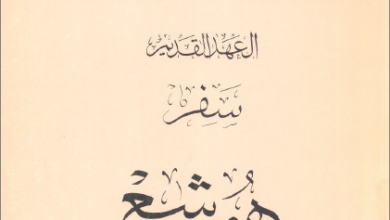 العهد القديم
سَِفر
هُوشع